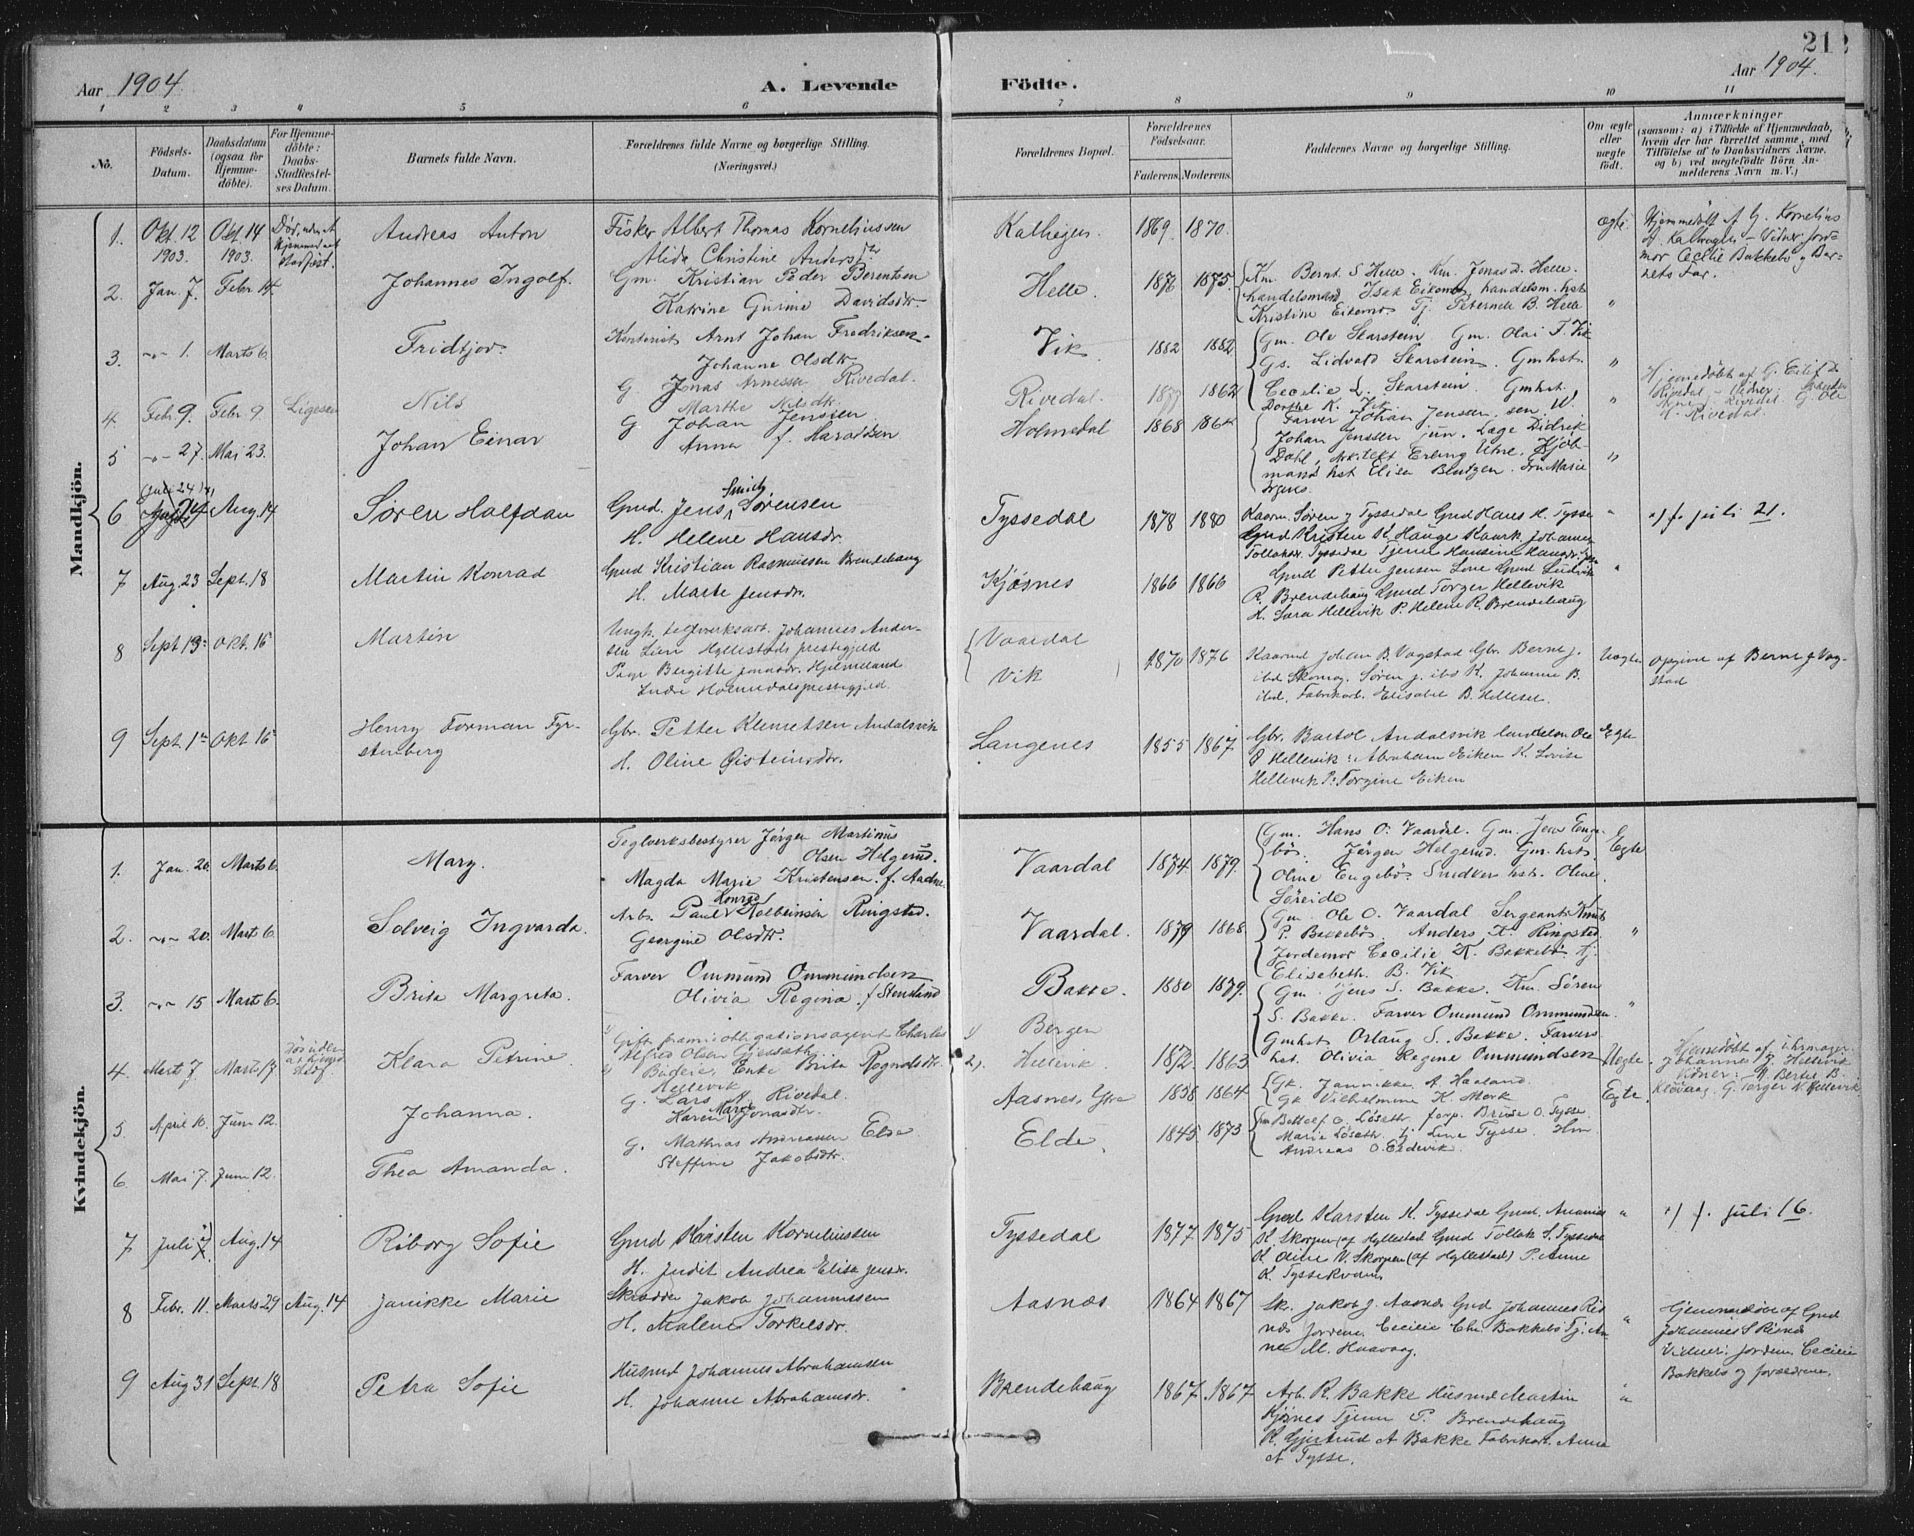 212
Aar 1904.
A. Levende
Födte.
Aar 1904.
1 2 3 4 5 6 7 8 9 10 11
No.
Födsels-Datum.
Daabsdatum (ogsaa for Hjemme-döbte).
For Hjemme-döbte: Daabs-Stadfæstel-ses Datum.
Barnets fulde Navn.
Forældrenes fulde Navne og borgerlige Stilling.
(Næringsvei.)
Forældrenes Bopæl.
Forældrenes Födselsaar.
Faderens. Moderens.
Faddernes Navne og borgerlige Stilling.
Om ægte eller uægte födt.
Anmærkninger
(saasom: a) i Tilfælde af Hjemmedaab, hvem der har forrettet samme, med Tilföielse af to Daabsvidners Navne, og b) ved uægtefödte Börn An-melderens Navn m. V.)
Mandkjön.
1. Okt. 12 1903. Okt. 14 1903. Andreas Anton
Fisker Albert Thomas Korneliussen
Alida Christine Andersdtr
1869. 1870. ægte.
2. Jan. 7. Febr 14. Johannes Ingolf.
Gm. Kristian Peder Berentsen
Katrine Gurine Davidsdtr
Helle. 1875.
Km. Bernt S Helle. Km. Jonas D. Helle.
Kristine Eikemo Tj. Peternelle B. Helle
3. 1. Marts 6. Fridtjov.
Kontorist Arnt Johan Fredriksen
Johanne Olsdtr.
Vik 1882 1882
Gm. Ole Skarstein Gm. Olai T. Vik
Gs. Lidvald Skarstein. Gmhst.
Cecilie L. Skarstein. Gmhst.
Dorthe K. Vik
4. Febr 9. Febr 9 Nils
G Jonas Arnesen Rivedal.
Marthe Nilsdtr.
Rivedal. 1862
5 27. Mai 23. Johan Einar
G Johan Jenssen
Anna f. Haraldsen
Holmedal 1868 1864
Farver Johan Jenssen, sen. W.
Johan Jenssen jun. Lage Didrik
Dahl, Arkitekt Erling Utne. Kjöb-
mands hst Elisa Frk Marie
6 Aug. 14 Søren Halfdan
Gmd. Jens Smith Sørensen
H. Helene Hansdr.
Tyssedal 1878 1880
Kaarm. Søren J Tyssedal Gmd Hans H. Tysse
Gmd Kristen K. Hauge Kaark. Johanne
Tollaksdr. Tyssedal Tjene Hansine Hansdr.
*) f. juli 21.
7 Aug. 23 Sept. 18 Martin Konrad
Gmd Kristian Rasmussen Brendehaug
H. Marte Jensdr.
Kjøsnes 1866 1866
Gmd Petter Jensen Gmd Ludvik
R. Brendehaug Gmd Torger Hellevik
H. Sara Hellevik P. Helene R. Brendehaug
8 Sept 13 Okt. 16 Martin
Ungk. teglverksarb. Johannes Ander-
sen Lien Hyllestads prestegjeld
Pige Bergitte Jonasdr. Hjelmeland
Indre Holmedals prestegjeld.
Vaardal
Vik
1870 1876
Kaarmd Johan B. Vagstad Gbr. Berne J.
ibd. Skomag. Søren J. ibd K. Johanne B.
ibd. Fabrikarb. Elisabet B. Hellesen.
Uægte
Opgivet af Berne J. Vag-
stad
9 Sept. 1 Okt 16 Henry Forman Fyr-
stenberg
Gbr. Petter Klemetsen Andalsvik
H. Oline Øisteinsdr.
Langenes 1855 1867
Gbr. Bastol Andalsvik Landhlm Ole
O Hellevik Abraham Eiken K. Lovise
Hellevik P. Torgine Eiken
Egte
Kvindekjön.
1. Jan. 20. Marts 6. Mary.
Teglverksbestyrer Jörgen Martinus
Olsen Helgerud.
Magda Marie Kristensen. f. Aadne
Vaardal 1874 1879.
Gm. Hans O. Vaardal. Gm. Jens Enge-
bös. Jörgen Helgerud. Gm. hst.
Oline Engebös Snedker hst. Oline
Söreide.
Egte
2. 20. Marts 6. Solveig Ingvarda.
Arb. Paul Konrad Kolbeinsen Ringstad.
Georgine Olsdtr.
Vaardal. 1879 1868
Gm. Ole O. Vaardal Sergeant Knut
P. Bakkebös. Anders K. Ringstad.
Jordemor Cecilie K. Bakkebö Tj.
Elisabeth. B. Vik
3. 15 Marts 6. Brita Margreta.
Farver Ommund Ommundsen
Olivia Regina f. Stensland
Bakke. 1880 1879.
Gm. Jens S. Bakke. Km. Sören
S. Bakke. Farver Ommund Ommundsen.
Gmhst Orlaug S. Bakke. Farvers
hst. Olivia Regine Ommundsen
4. Mart 7. Klara Petrine
Gift forhv. obligationsagent Charles
Alfred Olsen Gjesseth
Budeie, Enke Brita Rognldsdtr.
Hellevik
1) Bergen
2) Hellevik
1872. 1863
Uegte.
5. April 10. Juni 12. Johanna.
G. Lars A Rivedal.
Karen Marie Jonasdtr.
Aasnes, Ytre 1838 1864
Gk. Jannikke A. Haaland.
Gk Vilhelmine K. Mork
Egte.
6. Mai 7. Juni 12. Thea Amanda.
G. Mathias Andreassen Elde
Steffine Jakobsdtr.
Elde. 1845. 1873
Marie Løseth. Tj Line Tysse. Km
Andreas O. Eldevik.
7 Juli Aug. 14 Riborg Sofie
Gmd Karsten Korneliussen
H. Judit Andrea Elisa Jensdr.
Tyssedal 1877 1875
Gmd Karsten K. Tyssedal Gmd. Ananias
K. Skorpen (af Hyllestad) Gmd Tollak S. Tyssedal
K. Oline V. Skorpen (af Hyllestad) P. Anne
K. Tyssekvam
*) f. juli 16.
8 Febr. 11. Marts 29 Aug. 14 Janikke Marie
Skrædder Jakob Johannessen
H. Malene Torkelsdr.
Aasnæs 1864 1867
Sk. Jakob J. Aasnæs Gmd Johannes Ris-
næs Jordem. Cecilie Chr. Bakkebö Tj. An-
ne M. Haavaag.
Hjemmedøbt af Gmd
Johannes S Risnæs
Vidner: Jordem. Cecilie
Bakkebö og forældrene.
9 Aug 31 Sept. 18 Petra Sofie
Husmd Johannes Abrahamsen
H. Johanne Abrahamsdr.
Brendehaug 1867. 1867
Arb. R. Bakke Husmd Martin
Kjösnes Tjener P. Brendehaug
K. Gjertrud A Bakke Fabrikarb. Anna
A Tysse.